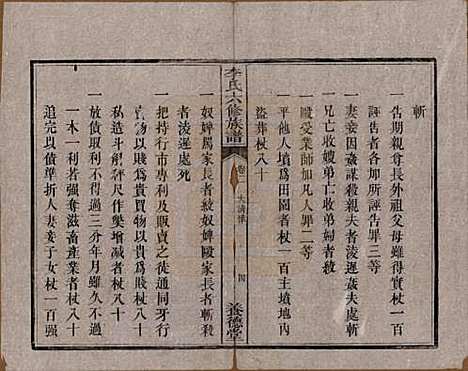 斬
一告期親尊長外祖父母雖得實杖一百
各加所誣告罪三等
一妻妾因姦謀殺親夫者凌遲姦夫處斬
一兄亡收嫂弟亡收弟婦者絞
一毆受業師加凡人罪二等
一平他人墳爲田園者杖一百主墳地內
盜葬杖八十
李氏六修族譜
卷二
大清律
四
養德堂
一奴婢罵家長者絞奴婢毆家長者斬殺
者凌遲處死
一把持行市專利及販賣之徒通同牙行
賣物以賤爲貴買物以貴爲賤杖八十
一私造斗斛秤尺作獘增減者杖八十
一放債取利不得過三分年月雖久不過
一本一利若強奪滋畜產業者杖八十
追完以債準折人妻妾子女杖一百強